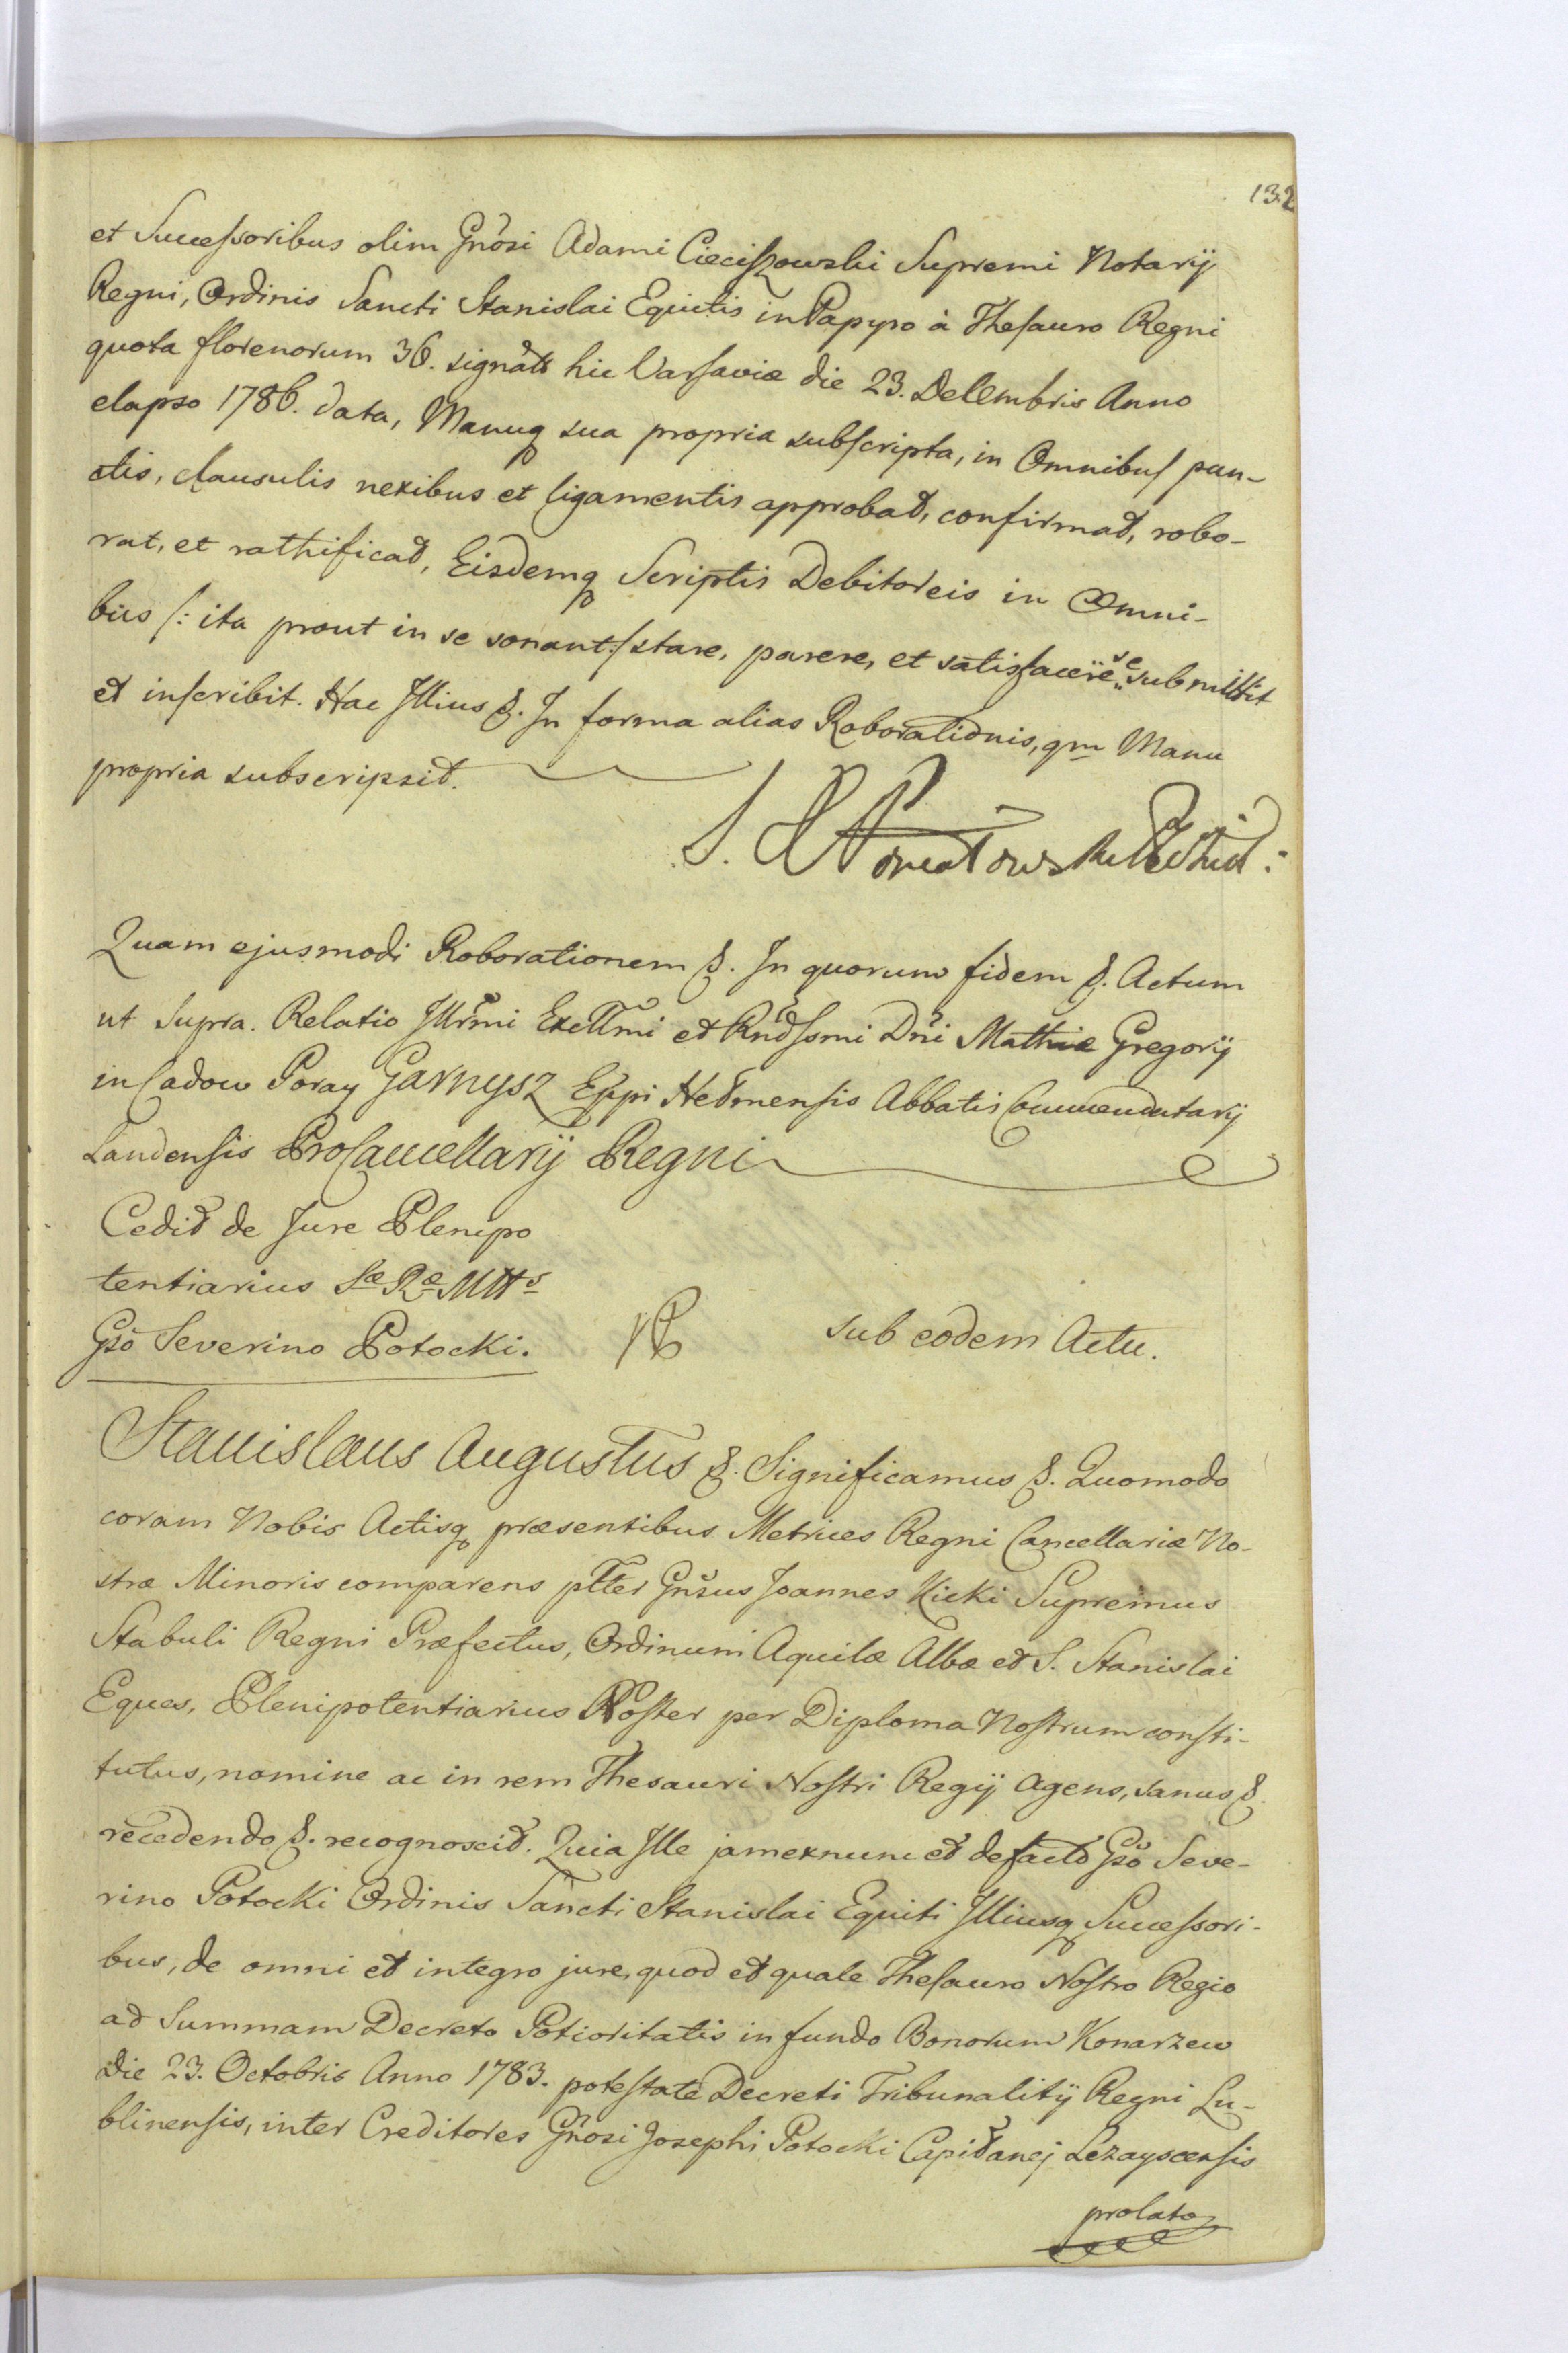 132
et Successoribus olim Gnosi Adami Cieciszowski Supremi Notarij
Regni, Ordinis Sancti Stanislai Equitis in Papyro à Thesauro Regni
quota florenorum 36. signata hic Varsaviæ die 23. Decembris Anno
elapso 1786. data, Manuq sua propria subscripta, in Omnibus pun-
ctis, clausulis nexibus et ligamentis approbat, confirmat, robo-
rat, et rathificat, Eisdemq Scriptis Debitoreis in Omni-
bus /: ita prout in se sonant :/ stare, parere, et satisfacere se submittit
et inscribit. Hac Illius &. In forma alias Roborationis, qm Manu
propria subscripsit.
S. Poniatowski
Quam ejusmodi Roborationem &. In quorum fidem &. Actum
ut supra. Relatio Illrmi Excllmi et Rndssmi Dni Mathiæ Gregorij
in Cadow Poray Garnysz Eppi Helmensis Abbatis Commendatarij
Landensis ProCancellarij Regni
Cedit de Jure Plenipo
tentiarius Sæ Ræ Mtts
Gso Severino Potocki.
sub eodem Actu.
Stanislaus Augustus &. Significamus &. Quomodo
coram Nobis Actisq præsentibus Metrices Regni Cancellariæ No-
stræ Minoris comparens pltter Gnsus Joannes Kicki Supremus
Stabuli Regni Præfectus, Ordinum Aquilæ Albæ et S. Stanislai
Eques, Plenipotentiarius Noster per Diploma Nostrum consti-
tutus, nomine ac in rem Thesauri Nostri Regij agens, sanus &.
recedendo &. recognoscit. Quia Ille jam exnunc et defacto Gso Seve-
rino Potocki Ordinis Sancti Stanislai Equiti Illiusq Successori-
bus, de omni et integro jure, quod et quale Thesauro Nostro Regio
ad Summam Decreto Potioritatis in fundo Bonorum Konarzew
die 23. Octobris Anno 1783. potestate Decreti Tribunalitij Regni Lu-
blinensis, inter Creditores Gnosi Josephi Potocki Capitanej Lezayscensis
prolato